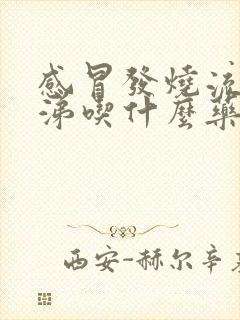 感冒發燒流
涕喫什麼藥
西安-赫尔辛